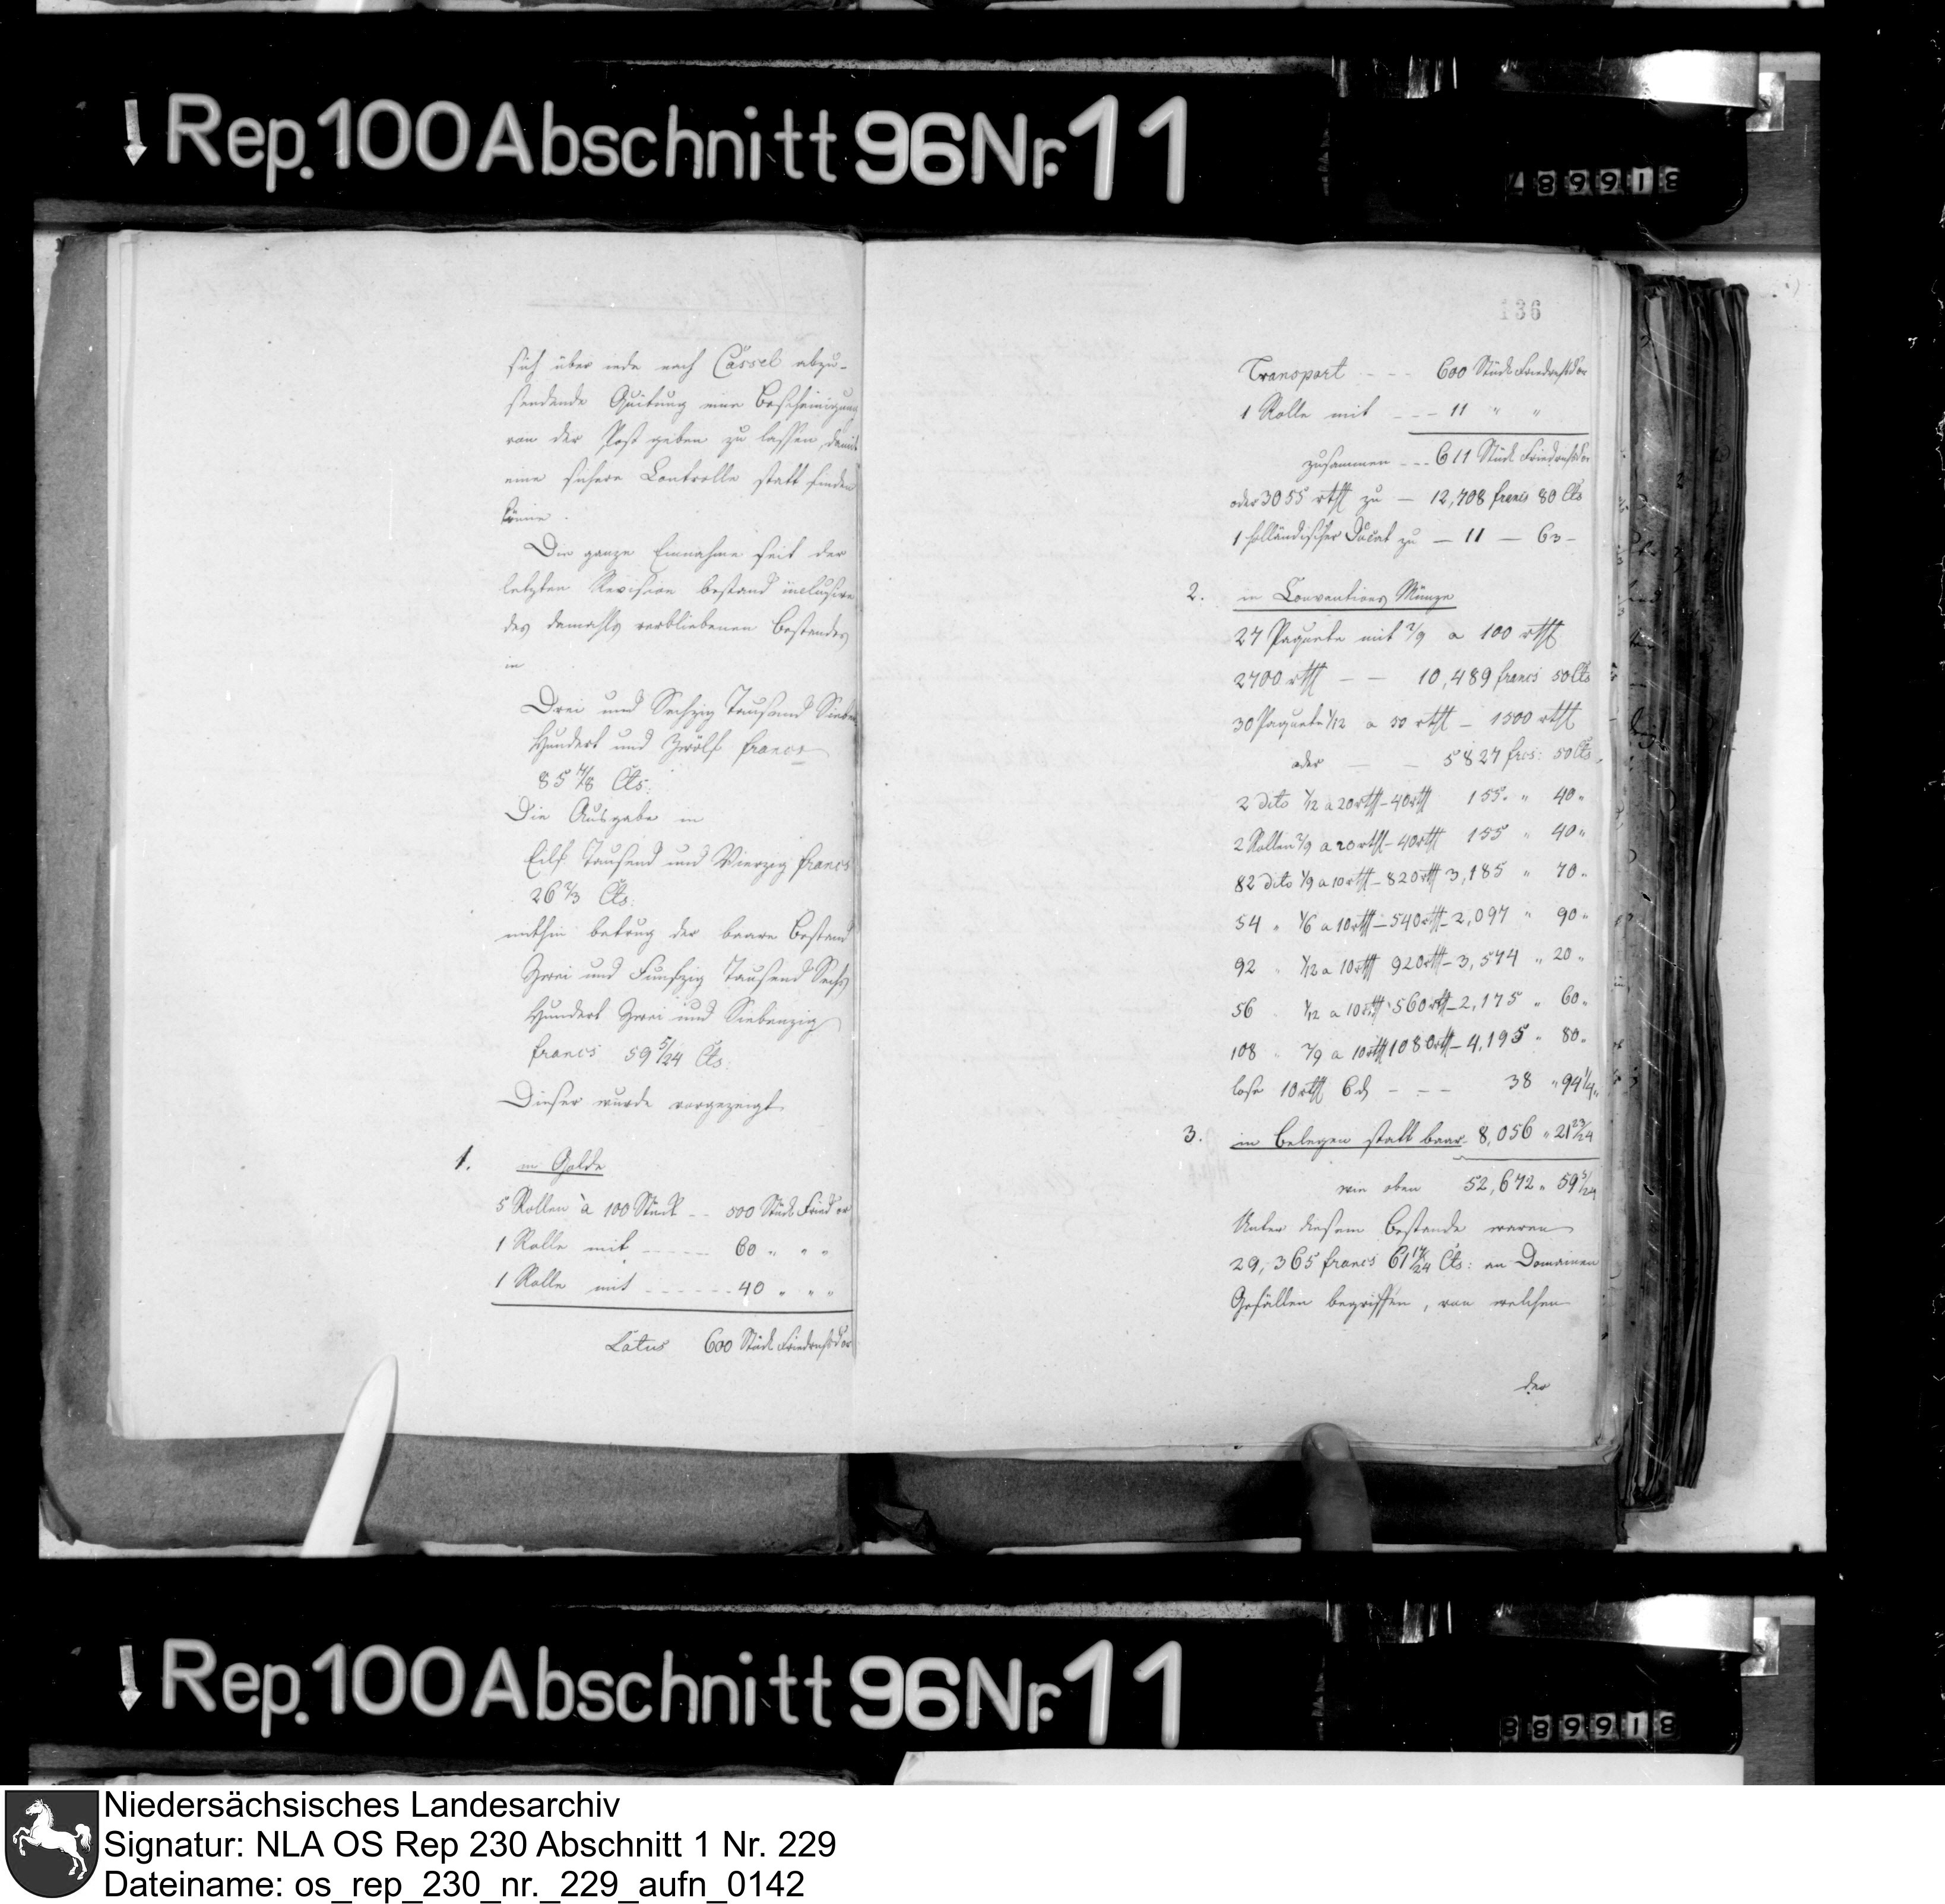 Rep. 100 Abschnitt 96 Nr. 11
sich über jede nach Cassel abzu-
sendende Quitung eine Bescheinigung
von der Post geben zu lassen, damit
eine sichere Controlle statt finden
könne.
Die ganze Einnahme seit der
letzten Revision bestand inclusive
des damahls verbliebenen Bestandes
in
Drei und Sechzig Tausend Sieben
Hundert und Zwölf francs
85 Cts:
Die Ausgabe in
Eilf Tausend und Vierzig francs
26 2/3 Cts.
mithin betrug der baare Bestand
Zwei und Funfzig Tausend Sechs
Hundert Zwei und Siebenzig
francs 59 5/24 Cts.
Dieser wurde vorgezeigt
1. in Golde
5 Rollen à 100 Stück -- 500 Stück Fried'or
1 Rolle mit ----- 60 " " "
1 Rolle mit ------ 40 " " "
Latus 600 Stück Friedrichsd'or
136
Transport --- 600 Stück Friedrichsd'or
1 Rolle mit --- 11 " "
zusammen --- 611 Stück Friedrichsd'or
oder 3055 rthl zu — 12,708 francs 80 Cts
1 holländischer Ducat zu — 11 — 63 -
2. in Conventions Münze
27 Paquete mit 2/9 a 100 rthl
2700 rthl — — 10,489 francs 50 Cts
30 Paquete 1/12 a 50 rthl — 1500 rthl
oder — — 5827 frcs: 50 Cts.
2 dito 1/12 a 20 rthl - 40 rthl 155. " 40 "
2 Rollen 2/9 a 20 rthl - 40 rthl 155 " 40 "
82 dito 1/9 a 10 rthl - 820 rthl 3,185 " 70 "
54 " 1/6 a 10 rthl - 540 rthl - 2,097 " 90 "
92 " 1/12 a 10 rthl 920 rthl - 3,574 " 20 "
56 " 1/12 a 10 rthl 560 rthl - 2,175 " 60 "
108 " 2/9 a 10 rthl 1080 rthl - 4,195 " 80 "
lose 10 rthl 6 d - - - 38 " 94 1/4 "
3. in Belegen statt baar 8,056 " 21 23/24
wie oben 52,672 " 59 5/24
Unter diesem Bestande waren
29,365 francs 61 17/24 Cts: an Domainen
Gefällen begriffen, von welchen
der
Rep. 100 Abschnitt 96 Nr. 11
Niedersächsisches Landesarchiv
Signatur: NLA OS Rep 230 Abschnitt 1 Nr. 229
Dateiname: os_rep_230_nr._229_aufn_0142